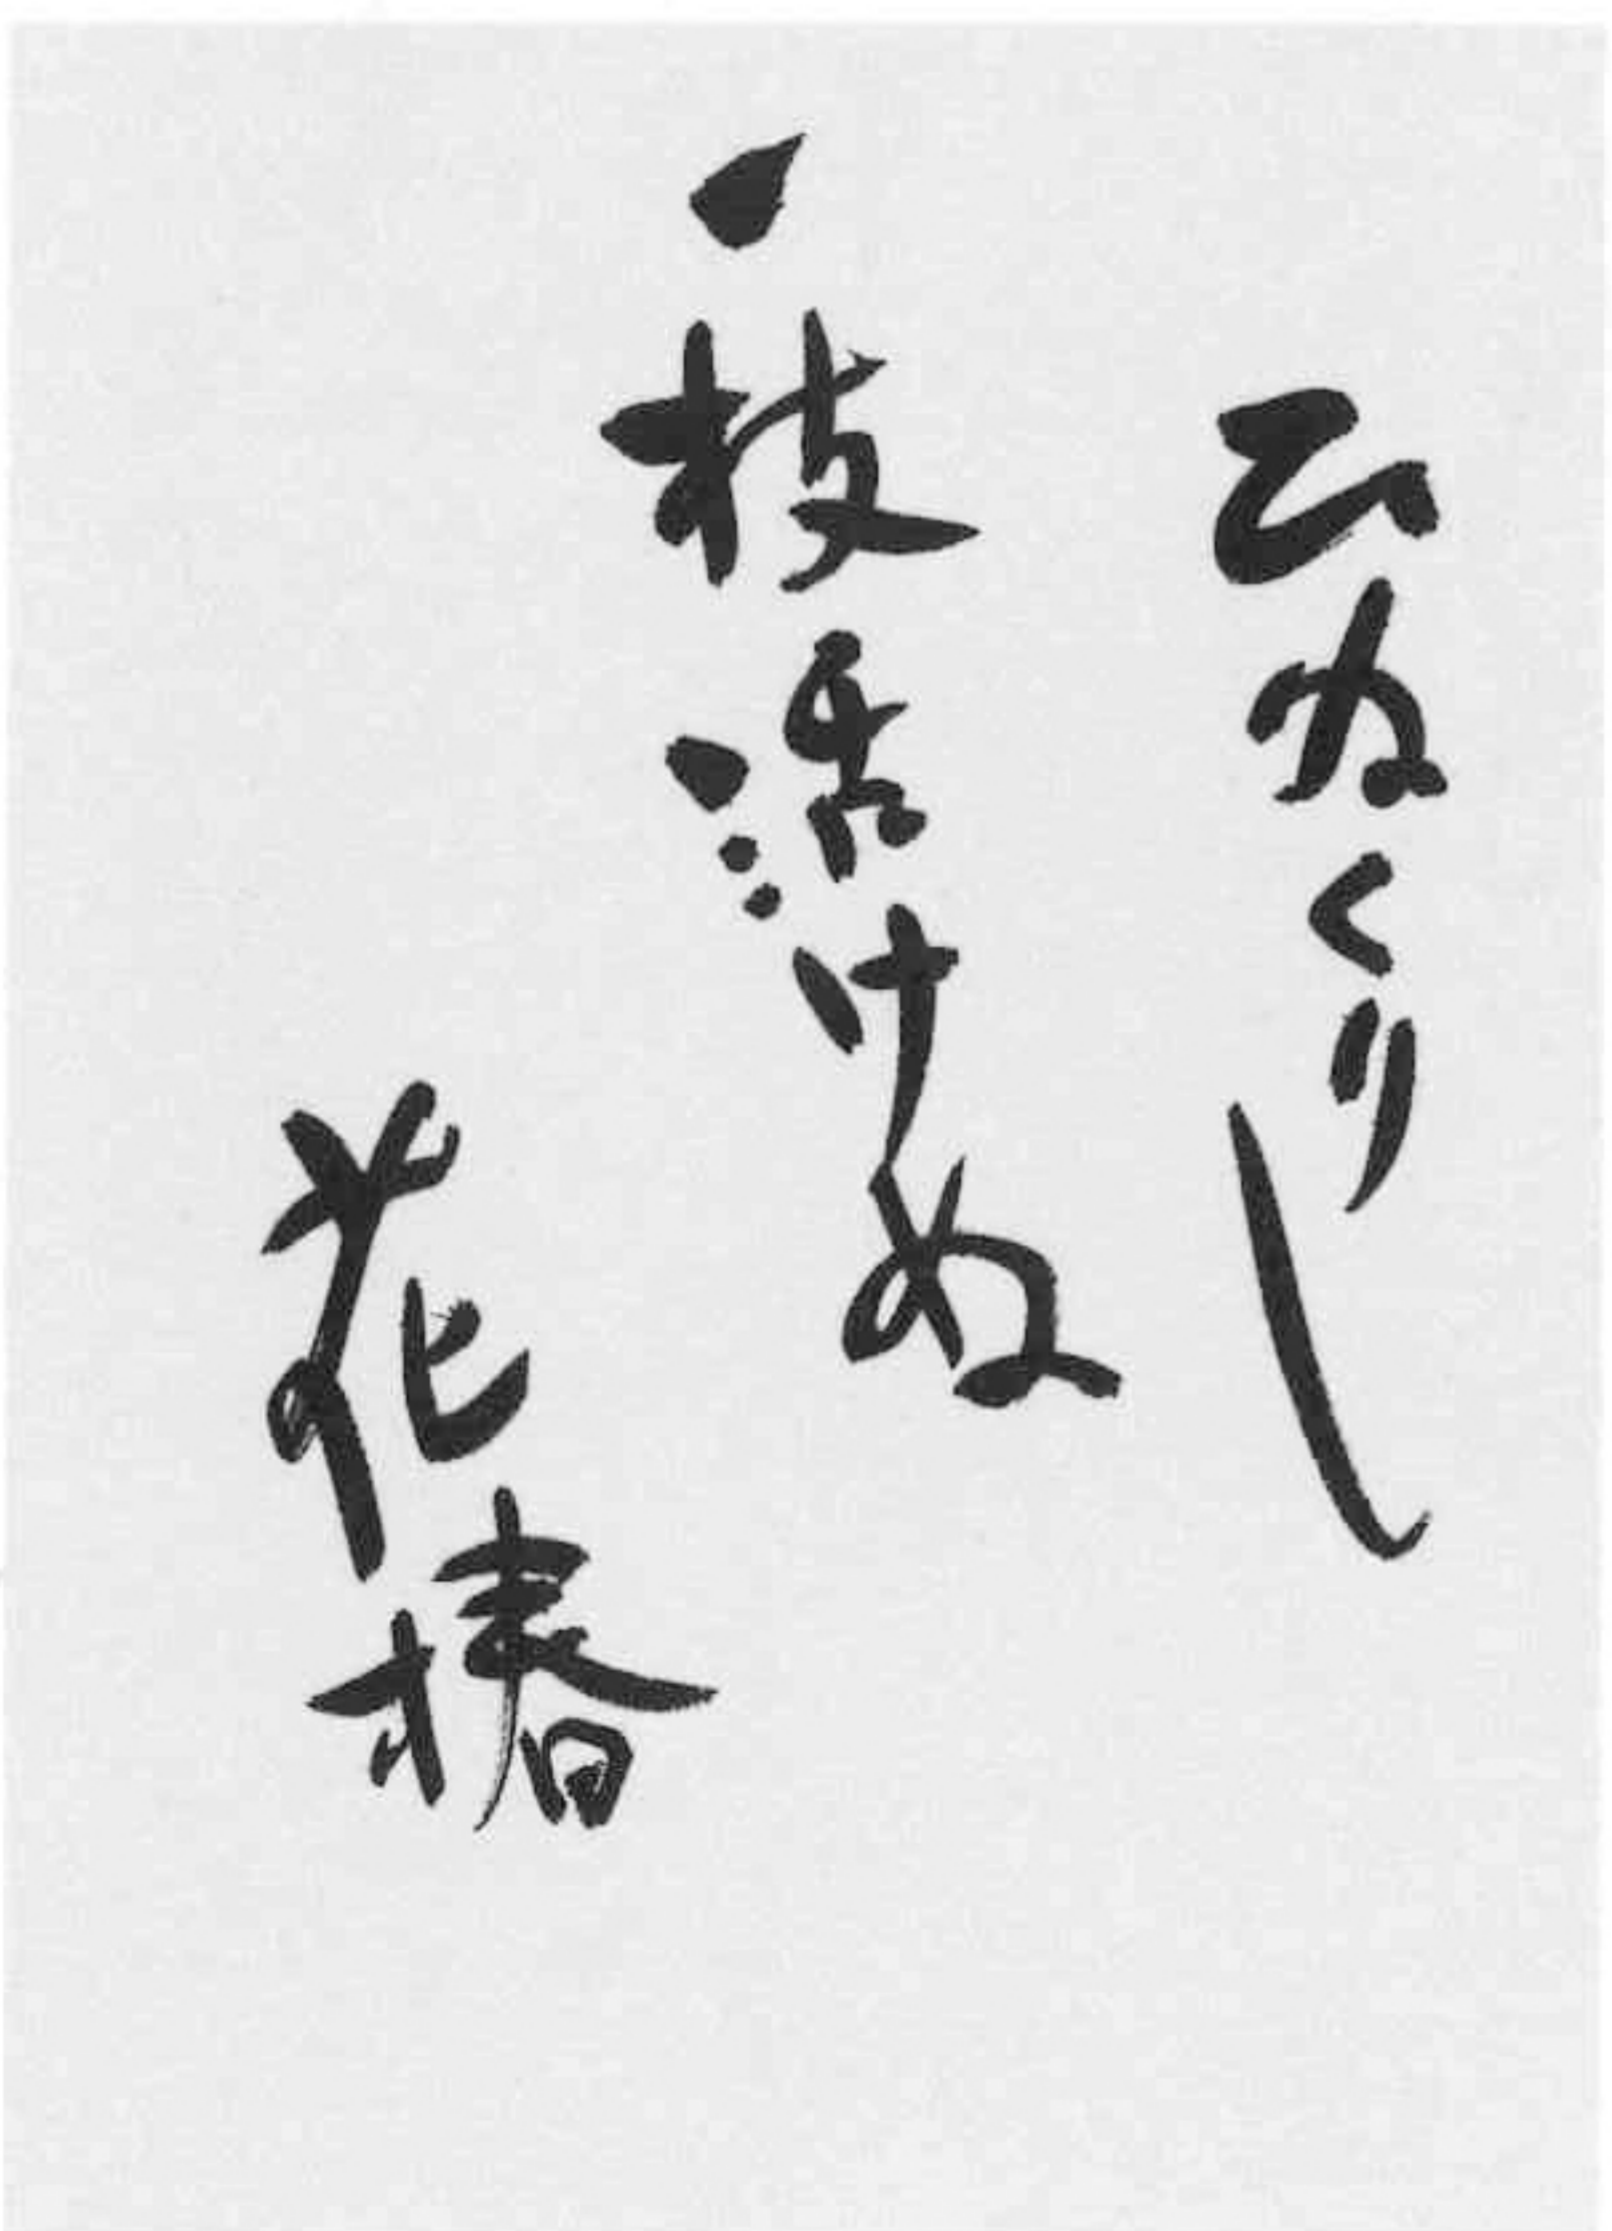 ひねくりし
一枝活けぬ
花椿